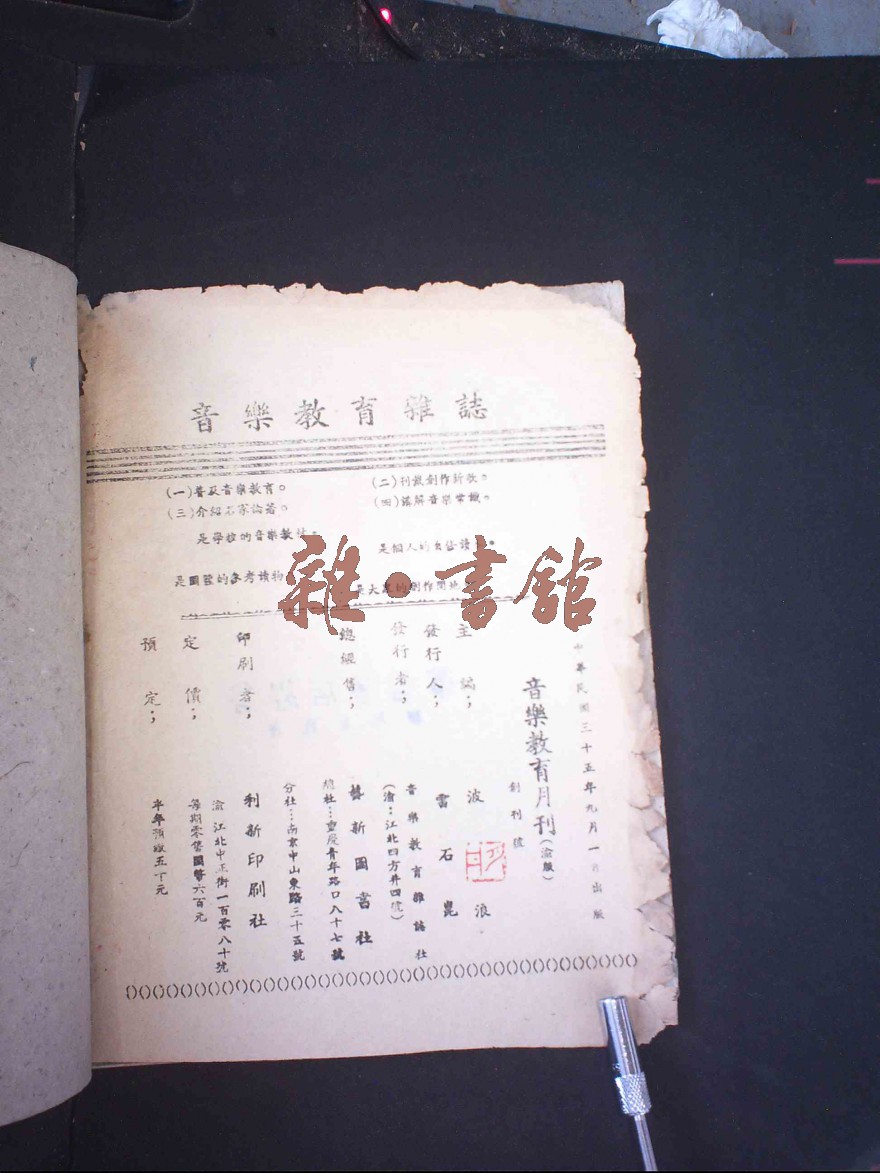 音樂教育雜誌
(一)普及音樂教育。
(二)刊載創作新歌。
(三)介紹名家論著。
(四)講解音樂常識。
是學校的音樂教材。
是個人的自修讀
是圖舘的參考讀物
是大眾的創作園地
雜·書舘
中華民國三十五年九月一日出版
音樂教育月刊(渝版)
創刊號
主編； 波浪
發行人； 雷石崑
發行者； 音樂教育雜誌社
(渝：江北四方井四號)
總經售； 藝新圖書社
總社…重慶青年路口八十七號
分社…南京中山東路三十五號
印刷者； 利新印刷社
渝 江北中正街一百零八十號
定價； 每期零售國幣六百元
預定； 半年預繳五千元